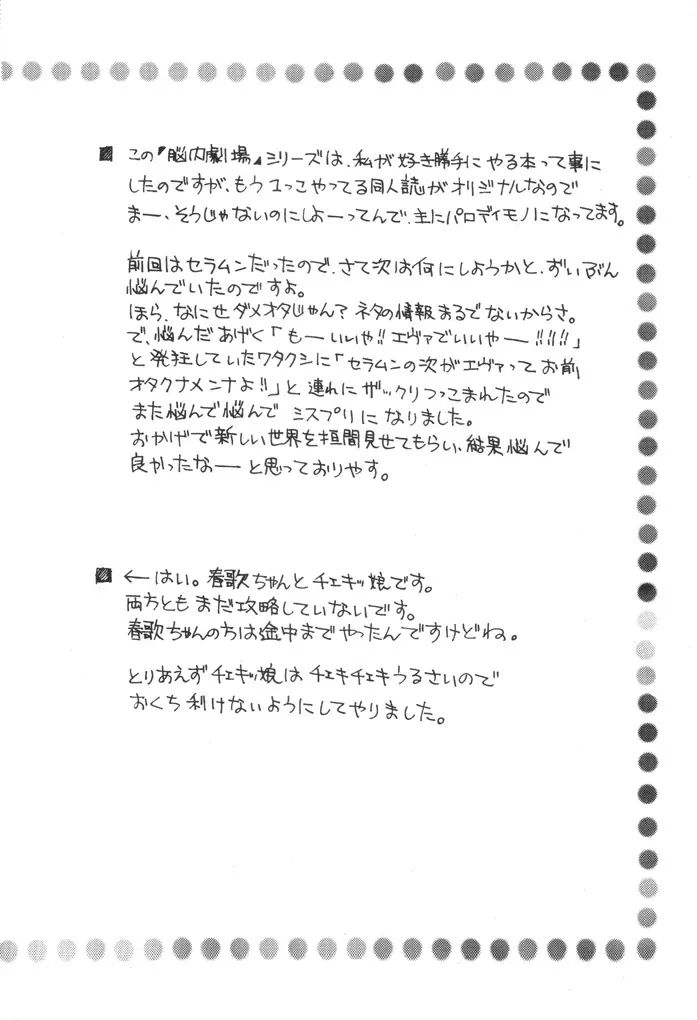 ■ この『脳内劇場』シリーズは、私が好き勝手にやる本って事に
したのですが、もう1っこやってる同人誌がオリジナルなので
まー、そうじゃないのにしよーってんで、主にパロディモノになってます。
前回はセラムンだったので、さて次は何にしようかと、ずいぶん
悩んでいたのですよ。
ほら、なにせダメオタじゃん？ネタの情報まるでないからさ。
で、悩んだあげく「もーいいや!!エヴァでいいやー!!!!」
と発狂していたワタクシに「セラムンの次がエヴァってお前
オタクナメンナよ!!」と連れにザックリつっこまれたので
また悩んで悩んで ミスプリになりました。
おかげで新しい世界を垣間見せてもらい、結果悩んで
良かったなーと思っておりやす。
■ ←はい。春歌ちゃんとチェキッ娘です。
両方ともまだ攻略していないです。
春歌ちゃんの方は途中までやったんですけどね。
とりあえずチェキッ娘はチェキチェキうるさいので
おくち利けないようにしてやりました。